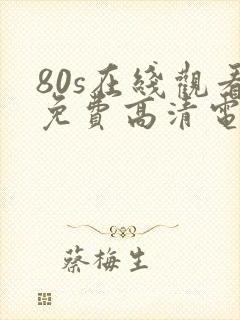 80s在綫觀看
免費高清電
蔡梅生